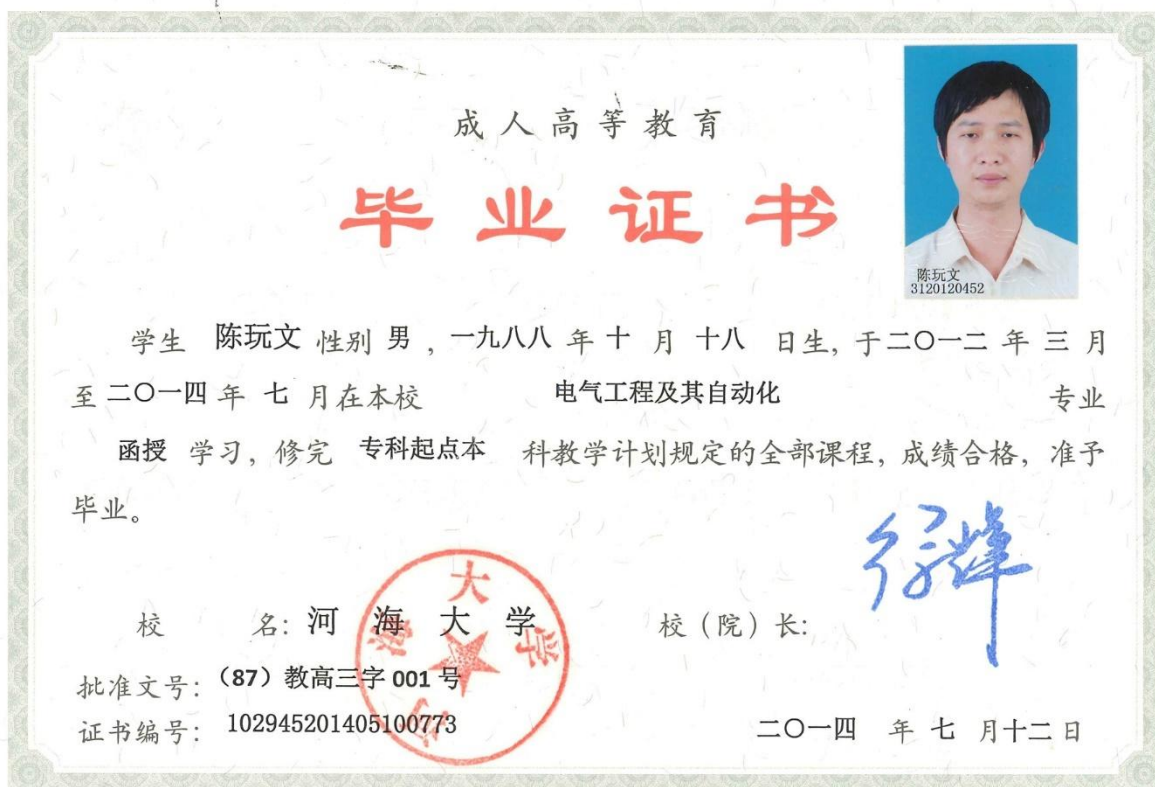 成人高等教育
毕业证书
陈玩文
3120120452
学生 陈玩文 性别 男 ，一九八八 年 十 月 十八 日生，于二〇一二 年 三 月
至 二〇一四 年 七 月在本校 电气工程及其自动化 专业
函授 学习，修完 专科起点本 科教学计划规定的全部课程，成绩合格，准予
毕业。
校 名：河 海 大 学 校（院）长：
批准文号：（87）教高三字 001 号
证书编号：102945201405100773
二〇一四 年 七 月十二日
河海大学